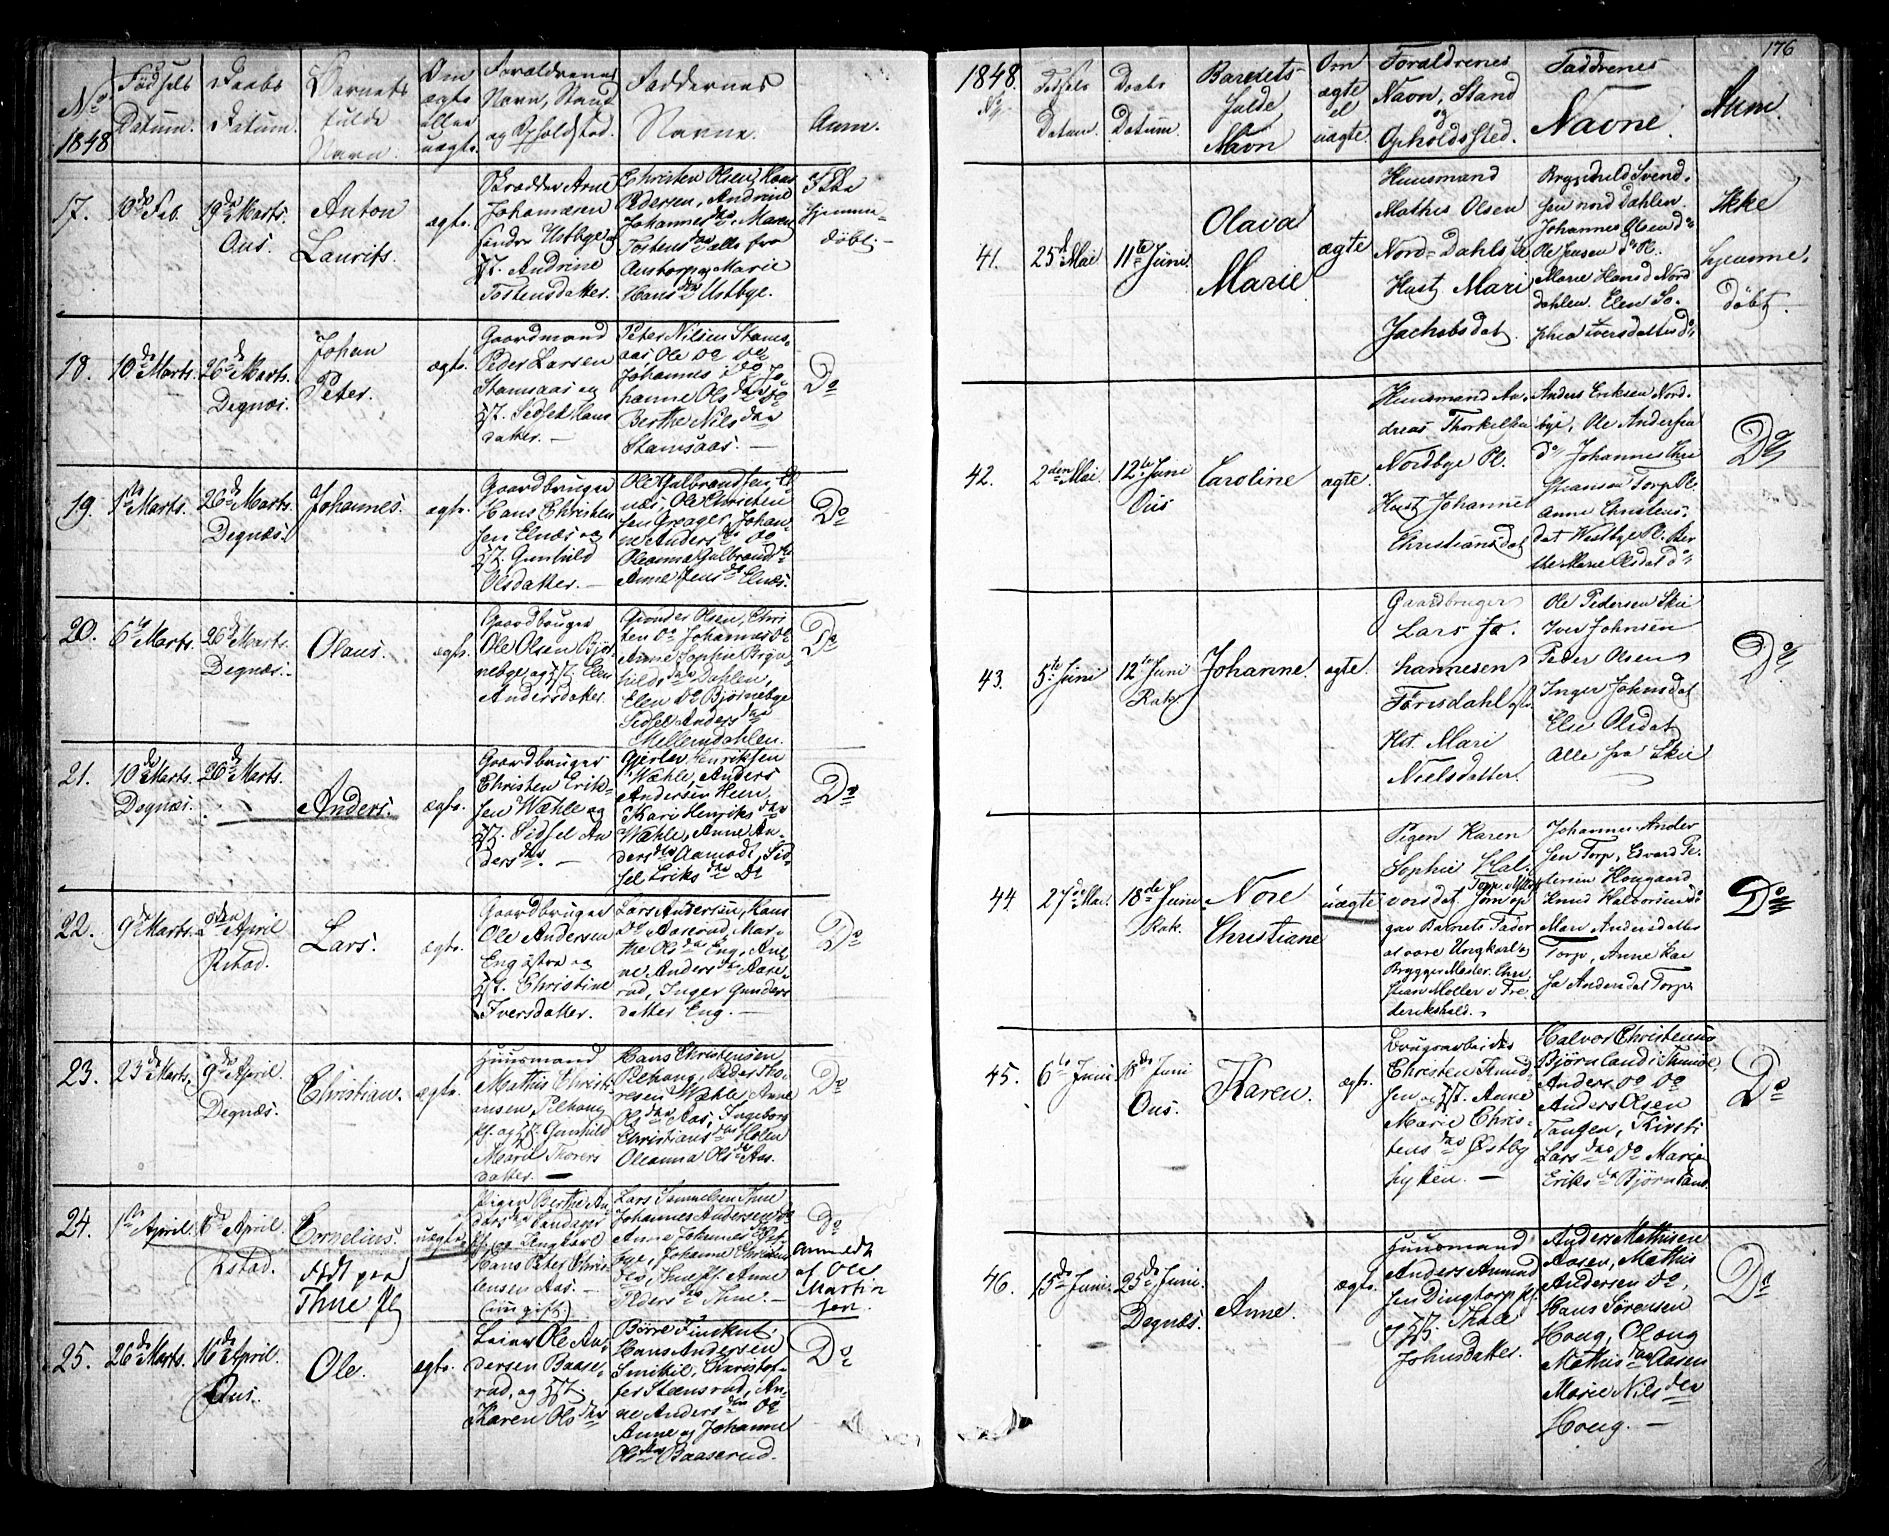 No
1848
Fødsels
Datum.
Daabs
Datum.
Barnets
fulde
Navn.
Om
ægte
eller
uægte.
Forældrenes
Navn, Stand
og Opholdsted.
Faddernes
Navne.
Anm.
17.
10de Feb.
19de Marts.
Ous.
Anton
Laurits.
ægte.
Skrædder Arne
Johannesen
søndre Ustbye og
H. Andrine
Tostensdatter.
Christen Olsen, Hans
Pedersen, Andrine
Johannesda, Maren
Tostensda alle fra
Marie
Hansda Ustbye.
Ikke
hjemme-
døbt.-
18.
10de Marts.
26de Marts.
Degnæs.
Johan
Peter.
ægte.
Gaardmand
Peder Larsen
Stamsaas og
H. Sidsel Hans
datter. -
Peter Nilsen Stams-
aas, Ole do do
Johannes do do, Jo-
hanne Olsdaa do
Berthe Nilsdaa
Stamsaas. -
Do
19.
1ste Marts.
26de Marts.
Degnæs.
Johannes.
ægte.
Gaardbruger
Hans Christen
sen Elnæs og
H. Gunhild
Olsdatter. -
Ole Gulbrandsen, El-
næs, Ole Christen
sen Johan-
ne Andersda do
Oleanna Gulbrandsda
Anne Jensda Elnæs.
Do
20.
6te Marts.
26de Marts.
Degnæs.
Olaus.
ægte.
Gaardbruger
Ole Olsen Bjør
nebye og H. Elen
Andersdatter.
Gunder Olsen, Chris
ten do Johannes do
Anne Sophie Bryn
hildsdaa Dahlen,
Elen do Bjørnebye
Sidsel Andersdaa
Mellemdahlen.
Do
21.
10de Marts.
Degnæs.
26de Marts.
Anders.
ægte.
Gaardbruger
Christen Erik-
sen Wæhle og
H. Sidsel An
dersdaa. -
Gjerlov Henriksen
Wæhle, Anders
Andersen Heen,
Kari Henriksdaa
Wæhle, Anne An-
dersdaa Aamodt, Sid-
sel Eriksdaa Do
Do
22.
9de Marts.
April
Rstad.
Lars.
ægte.
Gaardbruger
Ole Andersen
Eng østre og
H. Christine
Iversdatter.
Lars Andersen, Hans
Do Aaserud, Mar-
the Olsdaa Eng, An-
ne Andersda Aase-
rud, Inger Gunders
datter Eng. -
Do
23.
23de Marts.
9de April.
Degnæs.
Christian.
ægte.
Huusmand
Mathis Christi
ansen, Pelhaug
pl. og H. Gunhild
Maria Thorers
datter. -
Hans Christensen
Pelhaug, Peder Tho-
resen Wæhle, Anne
Olsdaa Aas, Ingeborg
Christiansdaa Holen
Oleanna Olsda Aas.
Do
24.
1ste April.
April.
Rstad.
Cornelius.
Født paa
Thue pl
uægte
Pigen Berthe An
dersdaa Sandager
pl. og Ungkarl
Hans Peter Chris
tensen Aas. -
(ungift.)
Lars Samuelsen Thue
Johannes Andersen do
Anne Johannesdaa Est-
bye, Johanne Christens
daa, Thue pl. Anne
Pedersda Thue. -
Do
anmeldt
af Ole
Martin
sen.
25.
26de Marts.
16de April.
Ous.
Ole.
ægte.
Leier Ole An
dersen Baase-
rud, og H.
Karen Olsdaa
Børre Finkut.
Hans Andersen
Smittil, Christof-
fer Steensrud, An-
ne Andersdaa do
Anne og Johanne
Olsdaa Baaserud.
Do
176
1848.
No.
Fødsels
Datum.
Daabs
Datum.
Barnets
fulde
Navn
Om
ægte
el
uægte.
Forældrenes
Navn, Stand
og
Opholdssted.
Faddrenes
Navne.
Anm.
41.
25de Mai
11te Juni.
Olava
Marie
ægte
Huusmand
Mathis Olsen
Nord-Dahls Pl
Hust. Mari
Jachobsdat.
Brynhild Svend-
sen nord Dahlen.
Johannes Olsen do
Ole Jensen do Pl.
Marie Hansd Nord
dahlen. Elen So-
phia Iversdatter do
Ikke
hjemme-
døbt.
42.
2den Mai.
12te Juni
Ous
Caroline
ægte.
Huusmand An-
dreas Thorkelsen
Nordbye Pl.
Hust Johanne
Christiansdat
Anders Eriksen Nord-
bye, Ole Andersen
do, Johannes Chri
stiansen Torp Pl.
Anne Christens-
dat Westbye Pl. Ber
the Marie Olsdat do
Do
43.
5te Juni
12te Juni
Rak.
Johanne
ægte.
Gaardbruger
Lars Jo-
hannesen
Førisdahl
Hst. Mari
Nielsdatter.
Ole Pedersen Skie
Iver Johnsen
Peder Olsen
Inger Johnsdat
Elie Olsdat
Alle fra Skie
Do
44
27de Mai.
18de Juni
Rak.
Nore
Christiane
uægte
Pigen Karen
Sophie Hal-
vorsdat
gav Barnets Fader
at være Ungkarl og
Brygger Mester Chri-
stian Møller i Fre
derikshald.
Johannes Ander
sen Torp, Edvard Pe-
tersen Hougaard
Knud Halvorsen do
Mari Andersdatter
Torp, Anne Kai
sa Andersdat Torp
Do
45.
6te Juni
18de Juni
Ous.
Karen.
ægte.
Brugsarbeider
Christen Knud
sen og H. Anne
Marie Chris-
tensdaa Østby
hytten. -
Halvor Christensen
Bjørnland i Thrmøe,
Anders do do
Anders Olsen
Tangen, Kirsti
Larsdaa do Marie
Eriksda Bjørnland.
Do
46.
15de Juni.
25de Juni.
Degnæs.
Anne.
ægte.
Huusmand
Anders Amund
sen Dingtorp pl.
og H. Thale
Johnsdatter.
Anders Mathisen
Aasen, Mathis
Andersen do,
Hans Sørensen
Houg, Oloug
Mathisdaa Aasen
Marie Nilsdaa
Houg. -
Do